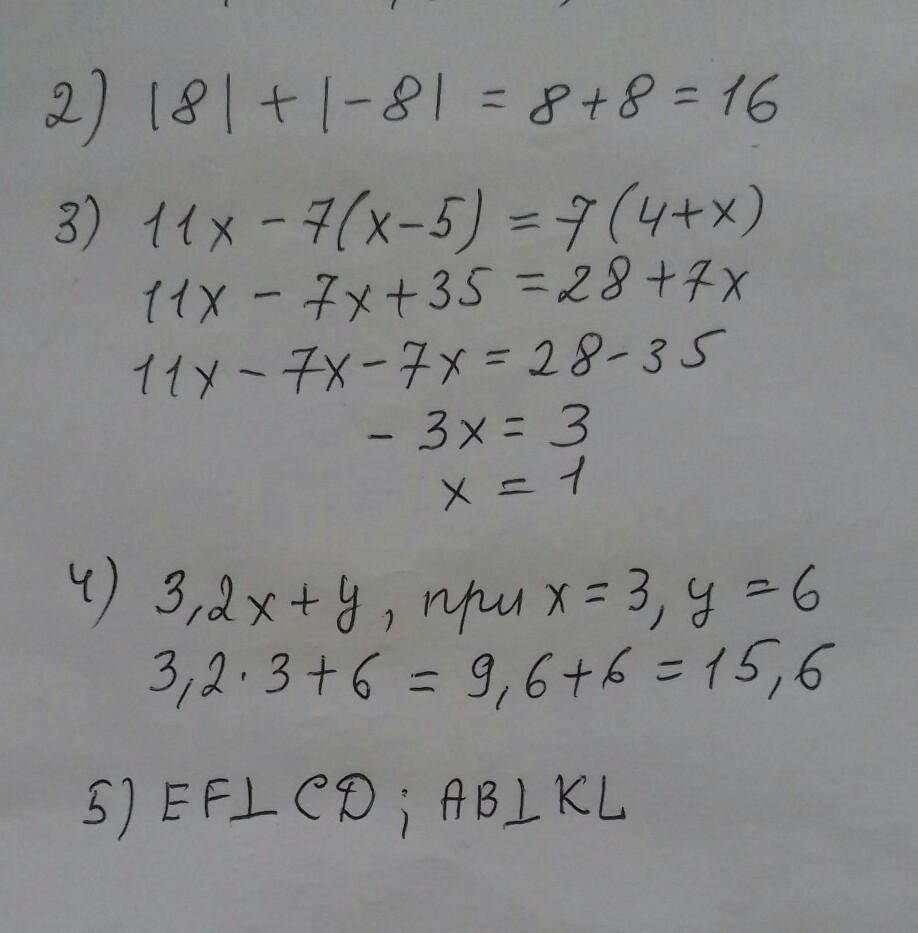 2) |8| + |-8| = 8+8 = 16
3) 11x - 7(x-5) = 7(4+x)
11x - 7x + 35 = 28 + 7x
11x - 7x - 7x = 28 - 35
- 3x = 3
x = 1
4) 3,2x + y, при x = 3, y = 6
3,2·3+6 = 9,6+6 = 15,6
5) EF⊥CD; AB⊥KL